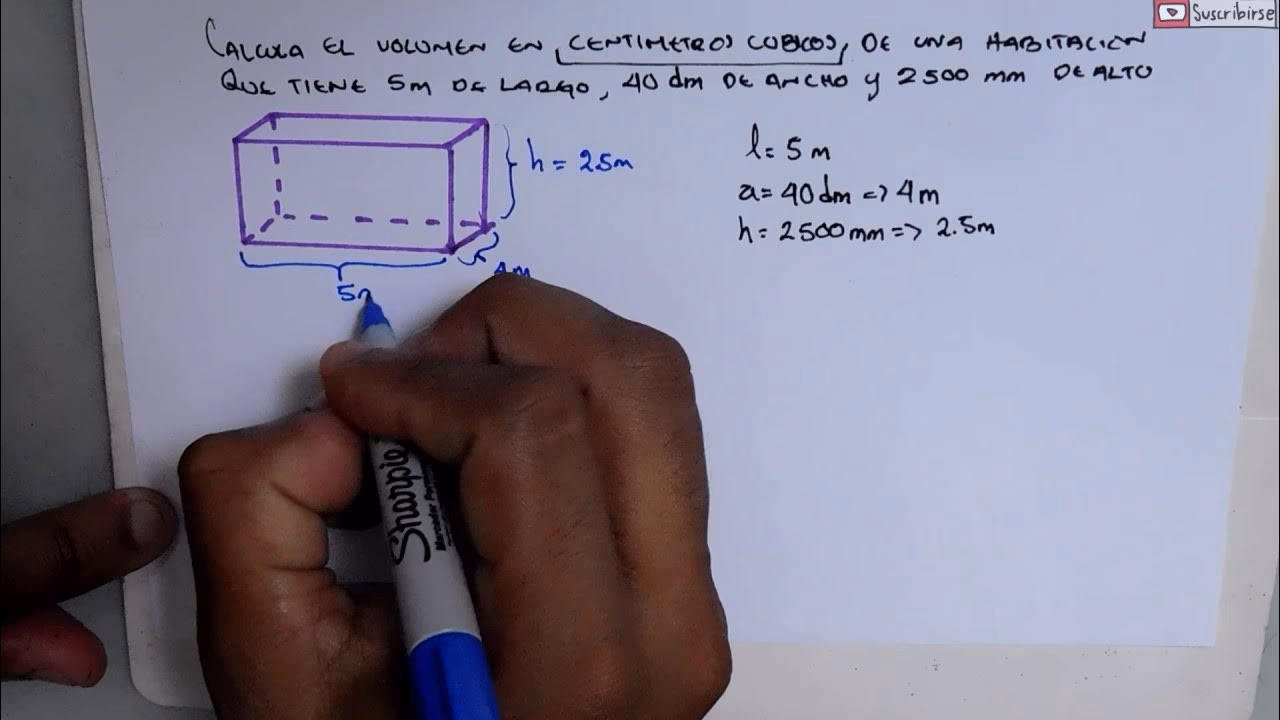 Suscribirse
CALCULA EL VOLUMEN EN CENTIMETROS CUBICOS, DE UNA HABITACION
QUE TIENE 5m DE LARGO, 40 dm DE ANCHO y 2500 mm DE ALTO
h = 2.5m
4m
5m
l = 5 m
a = 40 dm => 4m
h = 2500 mm => 2.5m
Sharpie